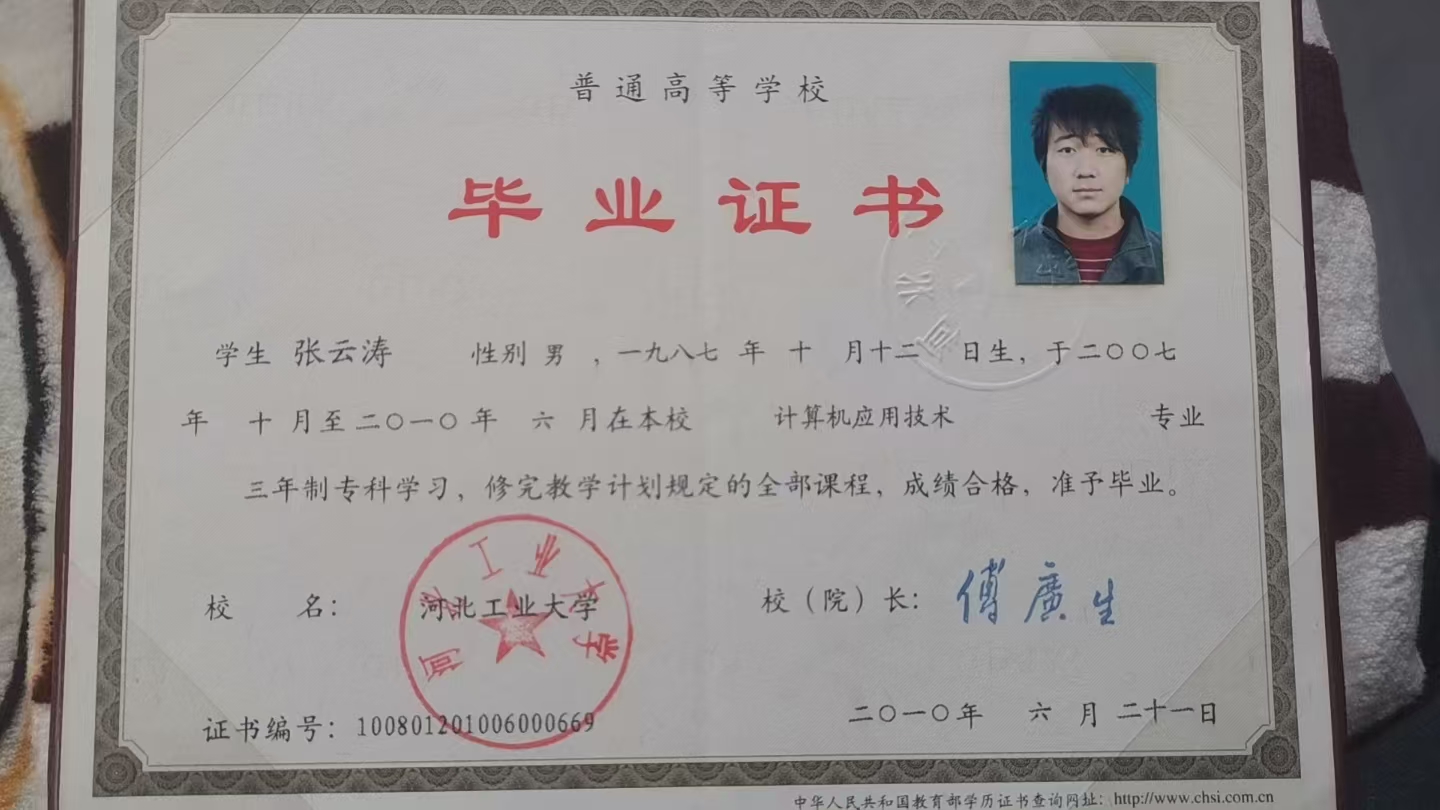 普通高等学校
毕业证书
学生 张云涛 性别 男 ，一九八七 年 十 月十二 日生，于二〇〇七
年 十 月至二〇一〇年 六 月在本校 计算机应用技术 专业
三年制专科学习，修完教学计划规定的全部课程，成绩合格，准予毕业。
河北工业大学
校 名： 河北工业大学 校（院）长： 傅廣生
证书编号：100801201006000669 二〇一〇年 六 月 二十一日
中华人民共和国教育部学历证书查询网址：http://www.chsi.com.cn